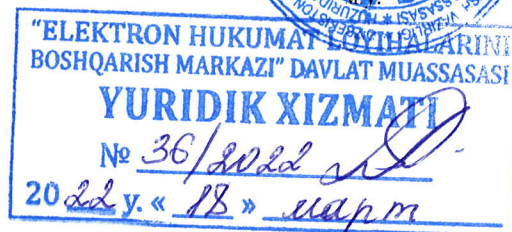 "ELEKTRON HUKUMAT LOYIHALARINI
BOSHQARISH MARKAZI" DAVLAT MUASSASASI
YURIDIK XIZMATI
№ 36/2022
2022 y. « 18 » март